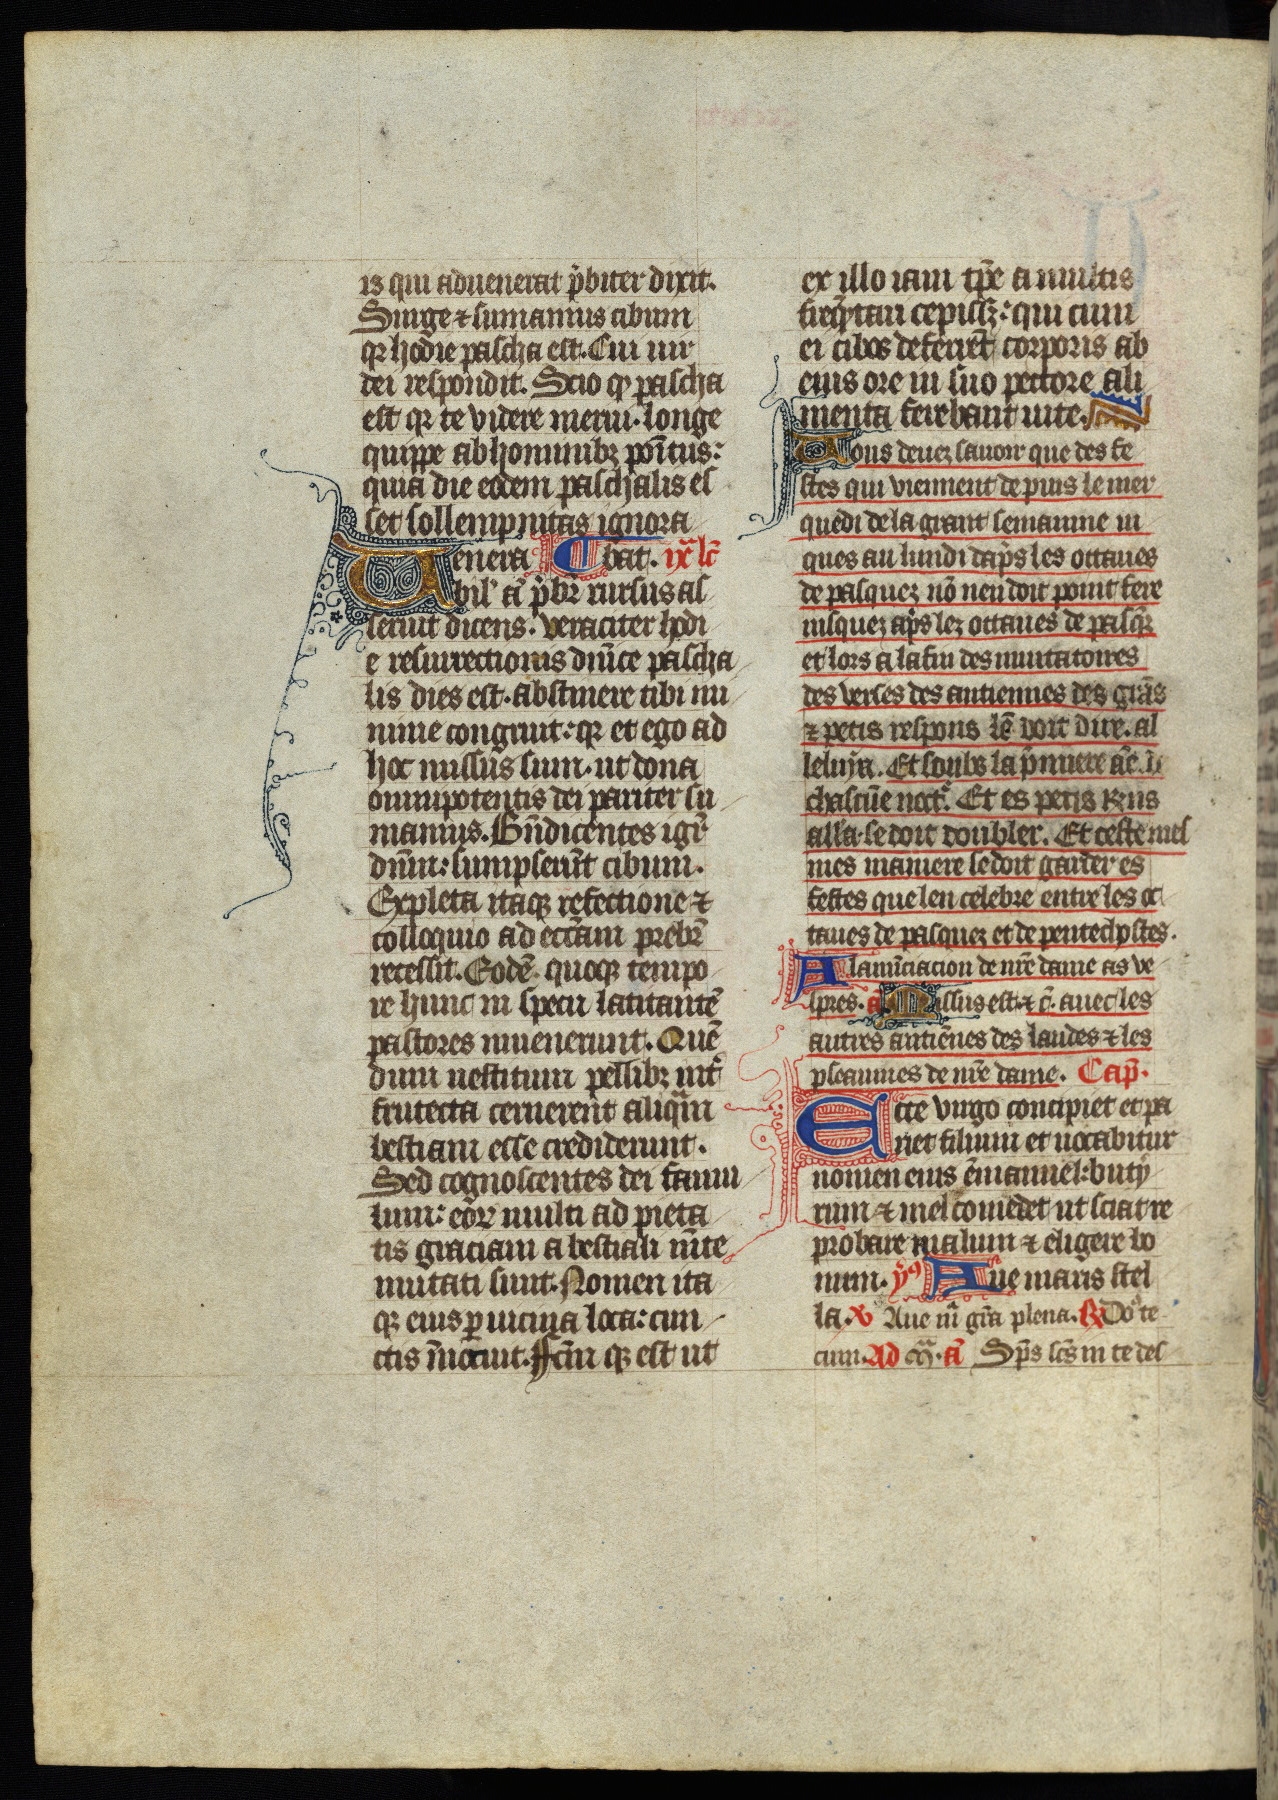 is qui aduenerat p̄biter dixit.
Surge ⁊ sumamus cibum
qr hodie pascha est. Cui uir
dei respondit. Scio qꝫ pascha
est qr te videre merui. longe
quippe ab hominibꝫ po͛itus:
quia die eodem paschalis es
set sollempnitas ignora
bat. ix lc̄
Uenera
bil' a͛ p̄br̄ rursus as
seruit dicens. veraciter hodi
e resurrectionis dn̄ice pascha
lis dies est. abstinere tibi mi
nime congruit: qr et ego ad
hoc missus sum. ut dona
omnipotentis dei pariter su
mamus. Bn̄dicentes igr̄
dn̄m: sumpserūt cibum.
Expleta itaqꝫ refectione ⁊
colloquio ad ecc̄am prebr̄
recessit. Eodē quoqꝫ tempo
re hunc in specu latitantē
pastores inuenerunt. Quē
dum uestitum pellibꝫ int̄
frutecta cernerent aliqͣm
bestiam esse crediderunt.
Sed cognoscentes dei famu
lum: eoꝝ multi ad pieta
tis graciam a bestiali m̄te
mutati sunt. Nomen ita
qꝫ eius ꝑ uicina loca: cun
ctis īnotuit. Fc̄m qꝫ est ut
ex illo iam tp̄e a multis
freq̄tari cepissꝫ: qui cum
ei cibos deferrēt corporis ab
eius ore in suo pectore ali
menta ferebant uite.
Uous deuez sauoir que des fe
stes qui viennent depuis le mer
quedi de la grant semainne iu
ques au lundi dap̄s les ottaues
de pasquez nō nen doit point fere
iusquez ap̄s lez ottaues de pasq̄ꝫ
et lors a la fin des inuitatoires
des verses des antiennes des grās
⁊ petis respons lē doit dire. al
leluya. Et soubs la p̄miere an̄e. ī
chascūe noct̄. Et es petis R̄ns
all'a. se doit doubler. Et ceste mes
mes maniere se doit garder es
festes que len celebre entre les oc
taues de pasquez et de penthecostes.
A lanūciacion de nr̄e dame as ve
spres. a͛ Missus est. ⁊ c̄. auec les
autres antiēnes des laudes ⁊ les
pseaumes de nr̄e dame. Cap̄.
Ecce virgo concipiet et pa
riet filium et uocabitur
nomen eius ēmanuel: buty
rum ⁊ mel comedet ut sciat re
probare malum ⁊ eligere bo
num. yꝰ Aue maris stel
la. v Aue mͣ gr̄a plena. R Do͛ te
cum. Ad mͣ. a͛ Sp̄s sc̄s in te des